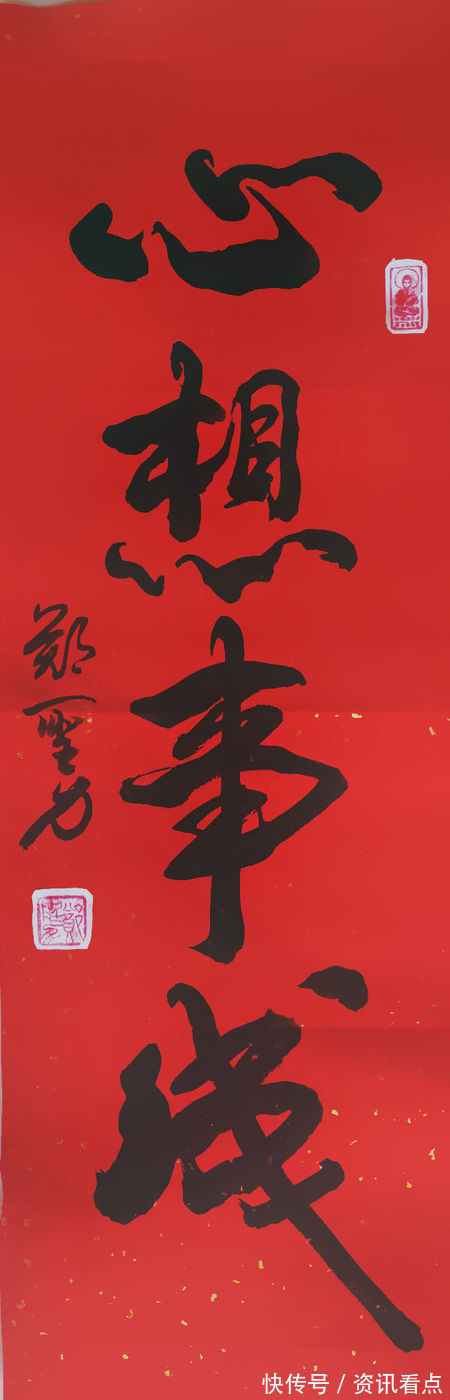 心想事成
郑
快传号 / 资讯看点